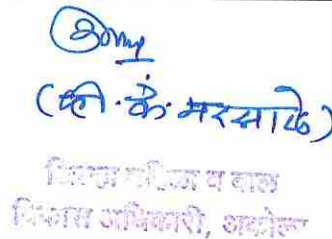 (व्ही. के. मरसाळे)
जिल्हा महिला व बाल
विकास अधिकारी, अकोला